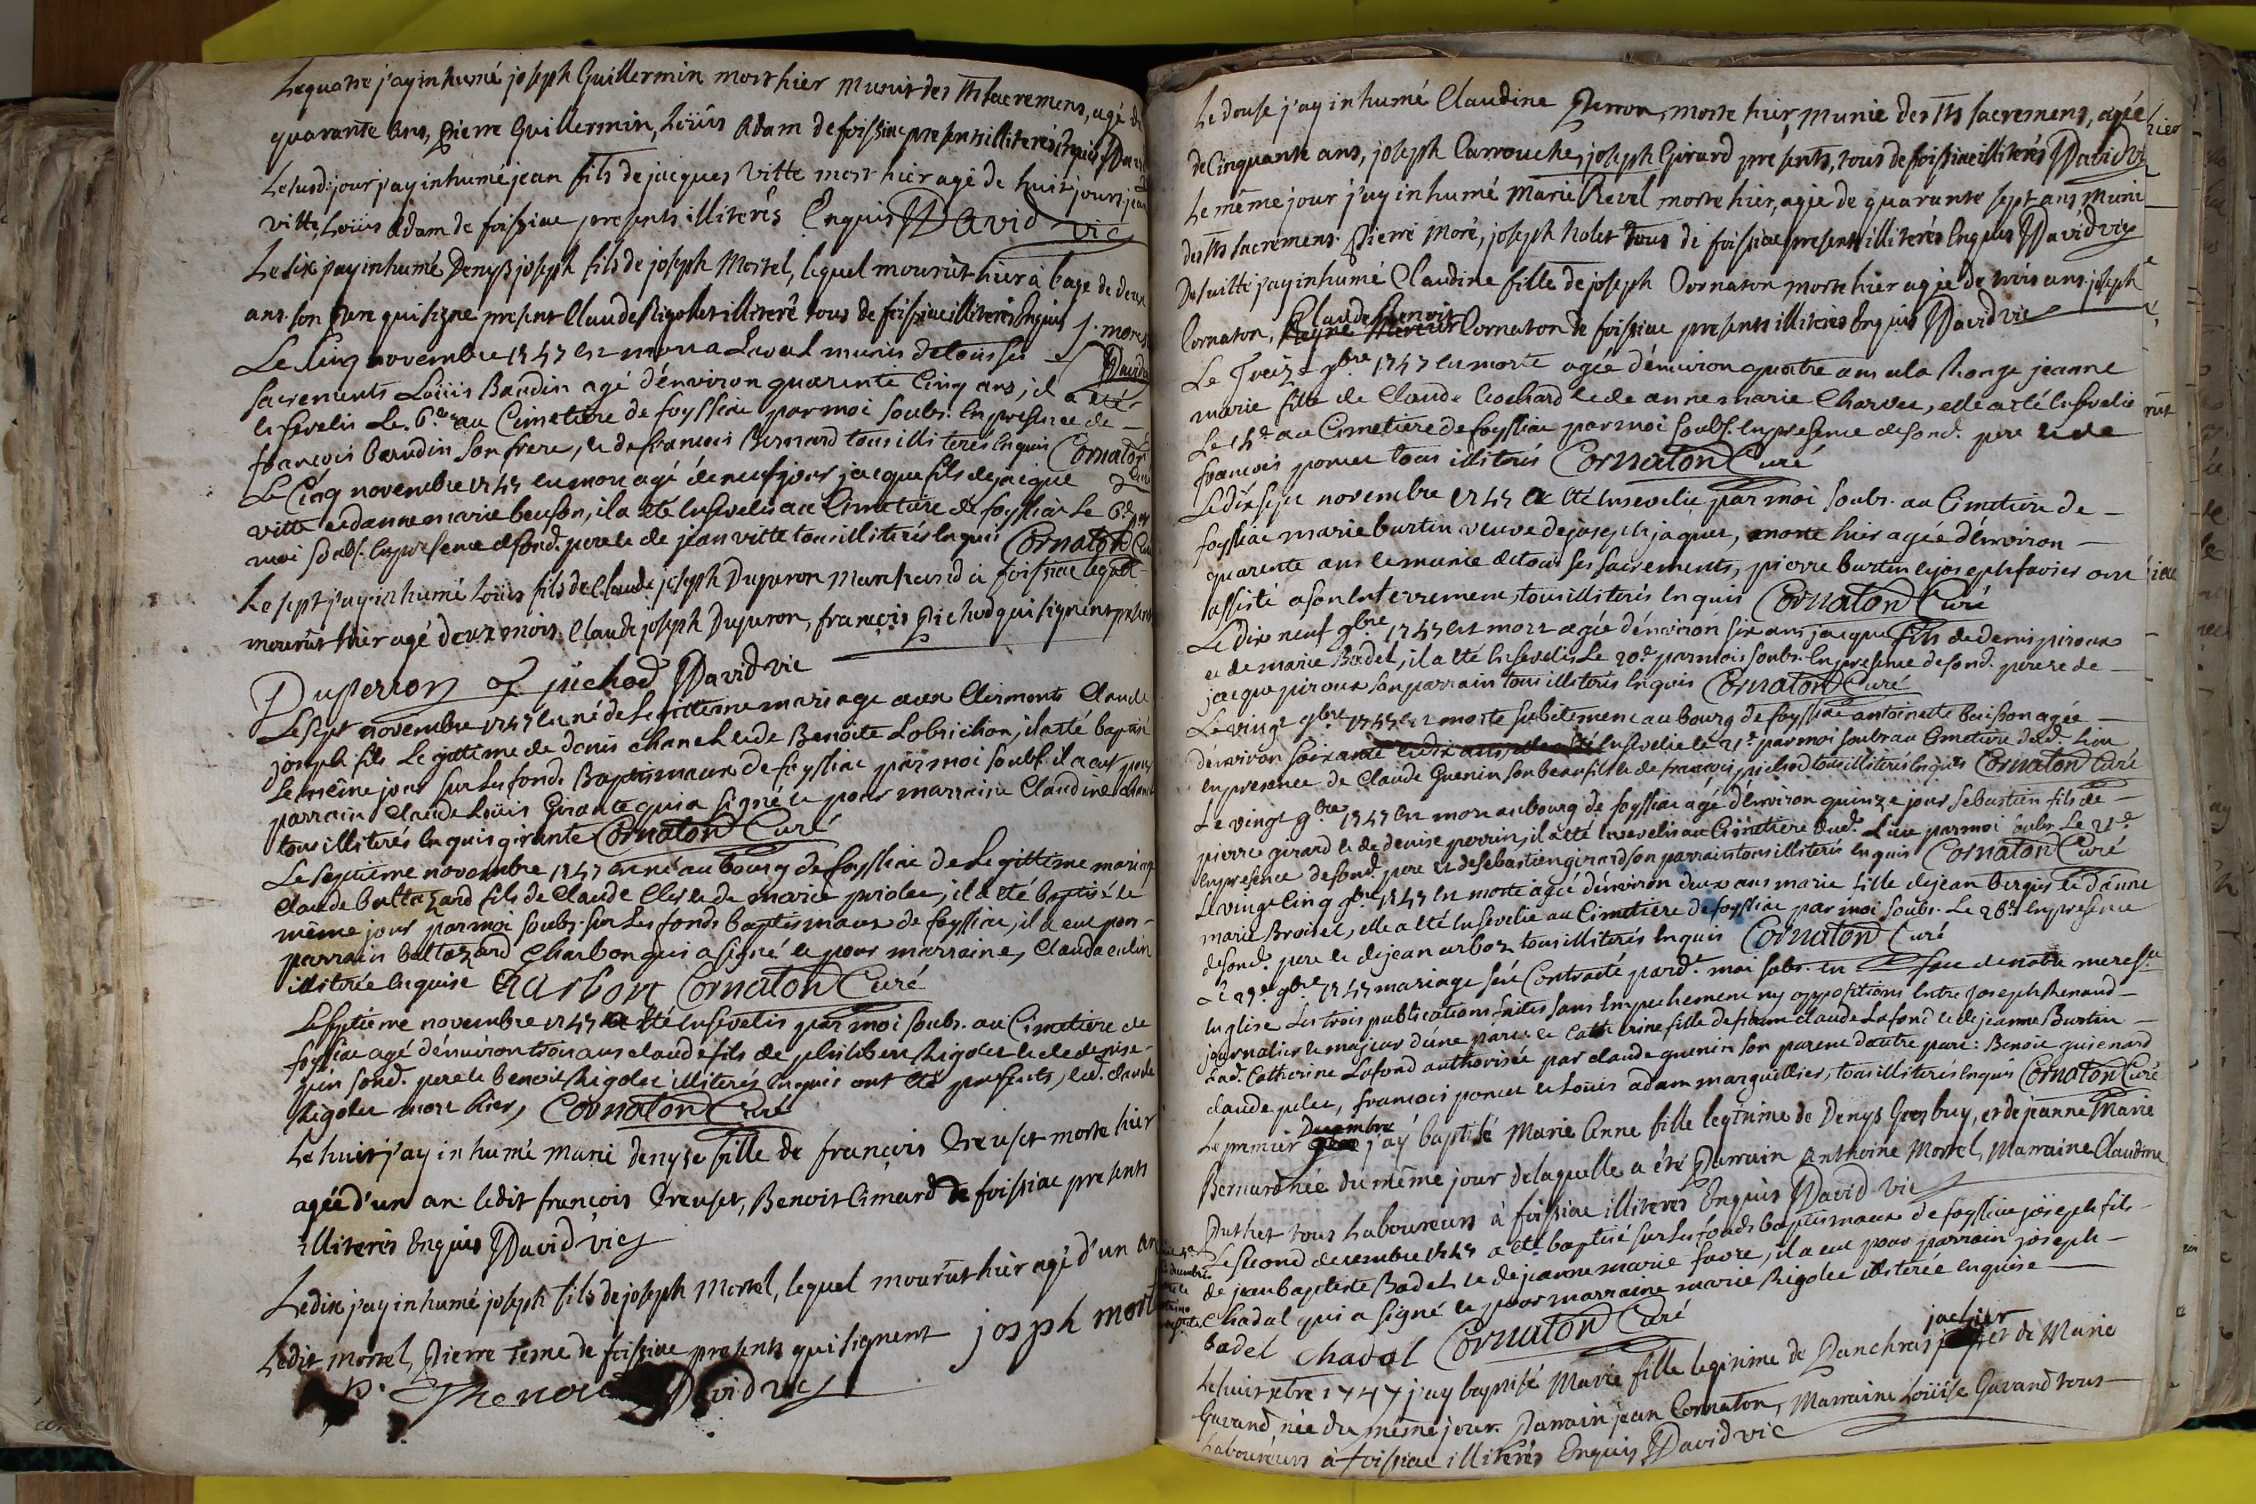 Le quatre j'ay inhumé joseph Guillermin mort hier munit des Sts sacremens, agé de
quarante ans, Pierre Guillermin, Loüis Adam de foissiac presents illiterés Enquis David
Le susd: jour j'ay inhumé jean fils de jacques vitte mort hier agé de huit jours, jean
vitte, Loüis Adam de foissiac presents illiterés Enquis David vic
Le six j'ay inhumé Denys joseph fils de joseph Mortel, lequel mourût hier à l'age de deux
ans. son Pere qui signe present Claude Rigolet illiteré tous de foissiac illiterés Enquis J. mortel
Le cinq novembre 1747 est mort a Laval munis de tous ses David
sacrements Loüis Baudin agé d'environ quarente Cinq ans, il a été
Ensevelis Le 6e au Cimetiere de foyssiac par moi soubs. En presence de
francois baudin son frere, et de francois Bernard tous illiterés Enquis Cornaton
Le Cinq novembre 1747 est mort agé de neuf jours jacque fils de jacque Curé
vitte et d'anne marie beuson, il a été Ensevelis au Cimetiere de foyssiac Le 6e par
moi soubs. En presence de sond. pere et de jean vitte tous illiterés Enquis Cornaton Curé
Le sept j'ay inhumé Loüis fils de Claude joseph Duperon Marchand à foissiac lequel
mourût hier agé deux mois. Claude joseph Duperon, françois Pichod qui signent presents
Duperron f pichod David vic
Le sept novembre 1747 est né de Legittime mariage aux Clermonts Claude
joseph fils Legittime de denis Chanel et de Benoite Lobrichon, il a été baptisé
Le même jour sur Les fonds Baptismaux de foyssiac par moi soubs. il a eut pour
parrain Claude Loüis Girante qui a signé et pour marraine Claudine Chanel
tous illiterés Enquis girante Cornaton Curé
Le septieme novembre 1747 est né au bourg de foyssiac de Legittime mariage
Claude baltazard fils de Claude Clerc et de marie piolet, il a été baptisé le
même jour par moi soubs. sur Les fonds baptismaux de foyssiac, il a eut pour
parrain baltazard Charbon qui a signé et pour marraine, Clauda
illiterée Enquise Charbon Cornaton Curé
Le septieme novembre 1747 a été Ensevelis par moi soubs. au Cimetiere de
foyssiac agé d'environ trois ans claude fils de philibert Rigolet et de denise
guin sond. pere et benoit Rigolet illiterés Enquis ont été presents, led. claude
Rigolet mort hier, Cornaton Curé
Le huit j'ay inhumé Marie denyse fille de françois Creuset morte hier
agée d'un an. ledit françois Creuset, Benoit Cimard de foissiac presents
illiterés Enquis David vic
Le dix j'ay inhumé joseph fils de joseph Mortel, lequel mourût hier agé d'un an
Ledit Mortel, Pierre Teme de foissiac presents qui signent joseph mortel
P. Thenou David vic
Le douse j'ay inhumé Claudine Perron, morte hier, munie des Sts sacremens, agée
de Cinquante ans, joseph Carrouche, joseph Girard presents, tous de foissiac illiterés David vic
Le même jour j'ay inhumé Marie Revel morte hier, agée de quarante sept ans munie
des Sts sacremens. Pierre Moré, joseph Nolet tous de foissiac presents illiterés Enquis David vic
De suitte j'ay inhumé Claudine fille de joseph Cornaton morte hier agée de trois ans. joseph
Claude Benoit
Cornaton, Cornaton de foissiac presents illiteres Enquis David vic
Le Treize 9bre 1747 est morte agée d'environ quatre ans a la Ronge jeanne
marie fille de Claude Cochard et de anne marie Charvet, elle a été Ensevelie
Le 14e au Cimetiere de foyssiac par moi soubs. En presence de sond. pere et de
francois poncet tous illiterés Cornaton Curé
Le dix sept novembre 1747 a été Ensevelie par moi soubs. au Cimetiere de
foyssiac marie burtin veuve de joseph jaquet, morte hier agée d'environ
quarente ans et munie de tous ses sacrements, pierre burtin et joseph favier ont
assisté a son Enterrement, tous illiterés Enquis Cornaton Curé
Le dix neuf 9bre 1747 est mort agée d'environ six ans jacque fils de denis piroux
et de marie Badel, il a été Ensevelis Le 20e par moi soubs. En presence de sond. pere et de
jacque piroux son parrain tous illiterés Enquis Cornaton Curé
Le vingt 9bre 1747 est morte subitement au bourg de foyssiac antoinette buisson agée
d'environ soixante et dix ans, elle a été Ensevelie le 21e par moi soubs au Cimetiere dud. Lieu
En presence de Claude Guenin son beau fils et de francois pichod tous illiterés Enquis Cornaton Curé
Le vingt 9bre 1747 est mort au bourg de foyssiac agé d'environ quinze jours sebastien fils de
pierre gerard et de denise perrin, il a été Ensevelis au Cimetiere dud. Lieu par moi soubs Le 21e
En presence de sond. pere et de sebastien girard son parrain tous illiterés Enquis Cornaton Curé
Le vingt Cinq 9bre 1747 est morte agée d'environ deux ans marie fille de jean bergier et d'anne
marie Broisel, elle a été Ensevelie au Cimetiere de foyssiac par moi soubs. Le 26e En presence
de sond. pere et de jean arboz tous illiterés Enquis Cornaton Curé
Le 29e 9bre 1747 mariage fut Contracté pard. moi soubs. En face de notre mere ste
Englise Les trois publications faites sans Empechement ny oppositions Entre Joseph Renaud
journalier et majeur d'une part et Catherine fille de feu claude Lafond et de jeanne Burtin
Lad. Catherine Lafond authorisée par claude guenin son parent d'autre part: Benoit guienard
claude pelet, francois poncet et Loüis adam marguillier, tous illiterés Enquis Cornaton Curé
Decembre
Le premier j'ay baptisé Marie Anne fille legitime de Denys Grezbuy, et de jeanne Marie
Bernard née du même jour de laquelle a été Parrain Anthoine Mortel, Marraine Claudine
Duthet tous Laboureurs à foissiac illiteres Enquis David vic
Le second decembre 1747 a été baptisé sur Les fonds baptismaux de foyssiac joseph fils
de jean baptiste Badel et de jeanne marie favre, il a eut pour parrain joseph
Chadal qui a signé et pour marraine marie Rigolet illiterée Enquise
badel Chadal Cornaton Curé
jachier
Le huit xbre 1747 j'ay baptisé Marie fille legitime de Panchras et de Marie
Gavand née du même jour. Parrain jean Cornaton, Marraine Loüise Gavand tous
Laboureurs à foissiac illiterés Enquis David vic